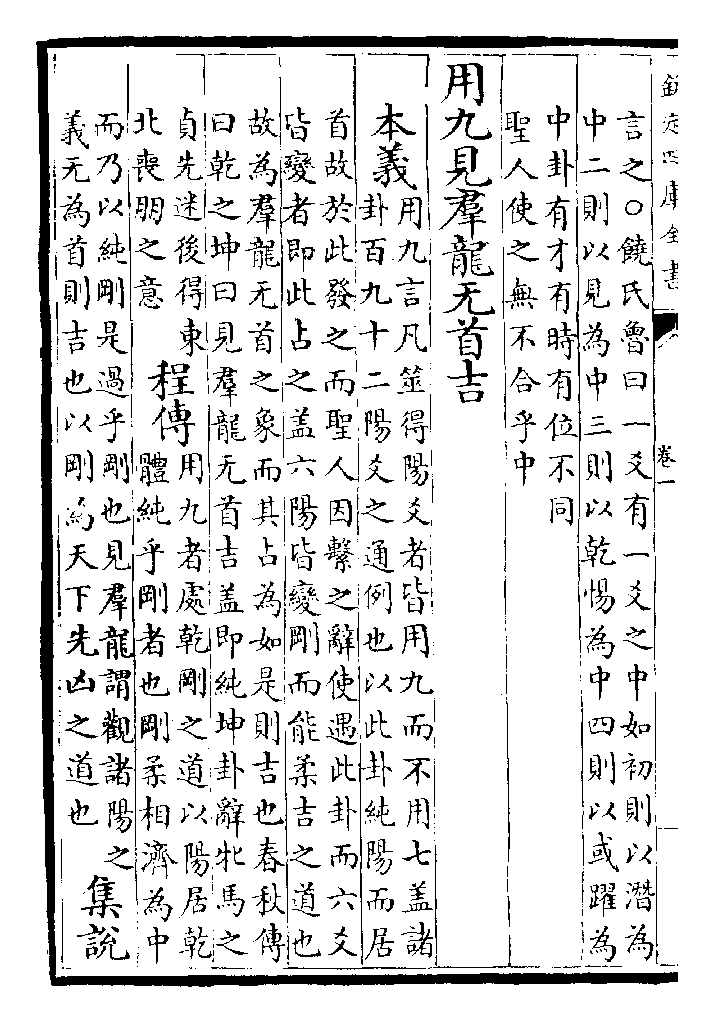 欽定四庫全書
卷一
言之○饒氏魯曰一爻有一爻之中如初則以潛為
中二則以見為中三則以乾惕為中四則以或躍為
中卦有才有時有位不同
聖人使之無不合乎中
用九見羣龍无首吉
本義
用九言凡筮得陽爻者皆用九而不用七盖諸
卦百九十二陽爻之通例也以此卦純陽而居
首故於此發之而聖人因繫之辭使遇此卦而六爻
皆變者即此占之盖六陽皆變剛而能柔吉之道也
故為羣龍无首之象而其占為如是則吉也春秋傳
曰乾之坤曰見羣龍无首吉盖即純坤卦辭牝馬之
貞先迷後得東
北喪朋之意
程傳
用九者處乾剛之道以陽居乾
體純乎剛者也剛柔相濟為中
而乃以純剛是過乎剛也見羣龍謂觀諸陽之
義无為首則吉也以剛為天下先凶之道也
集說